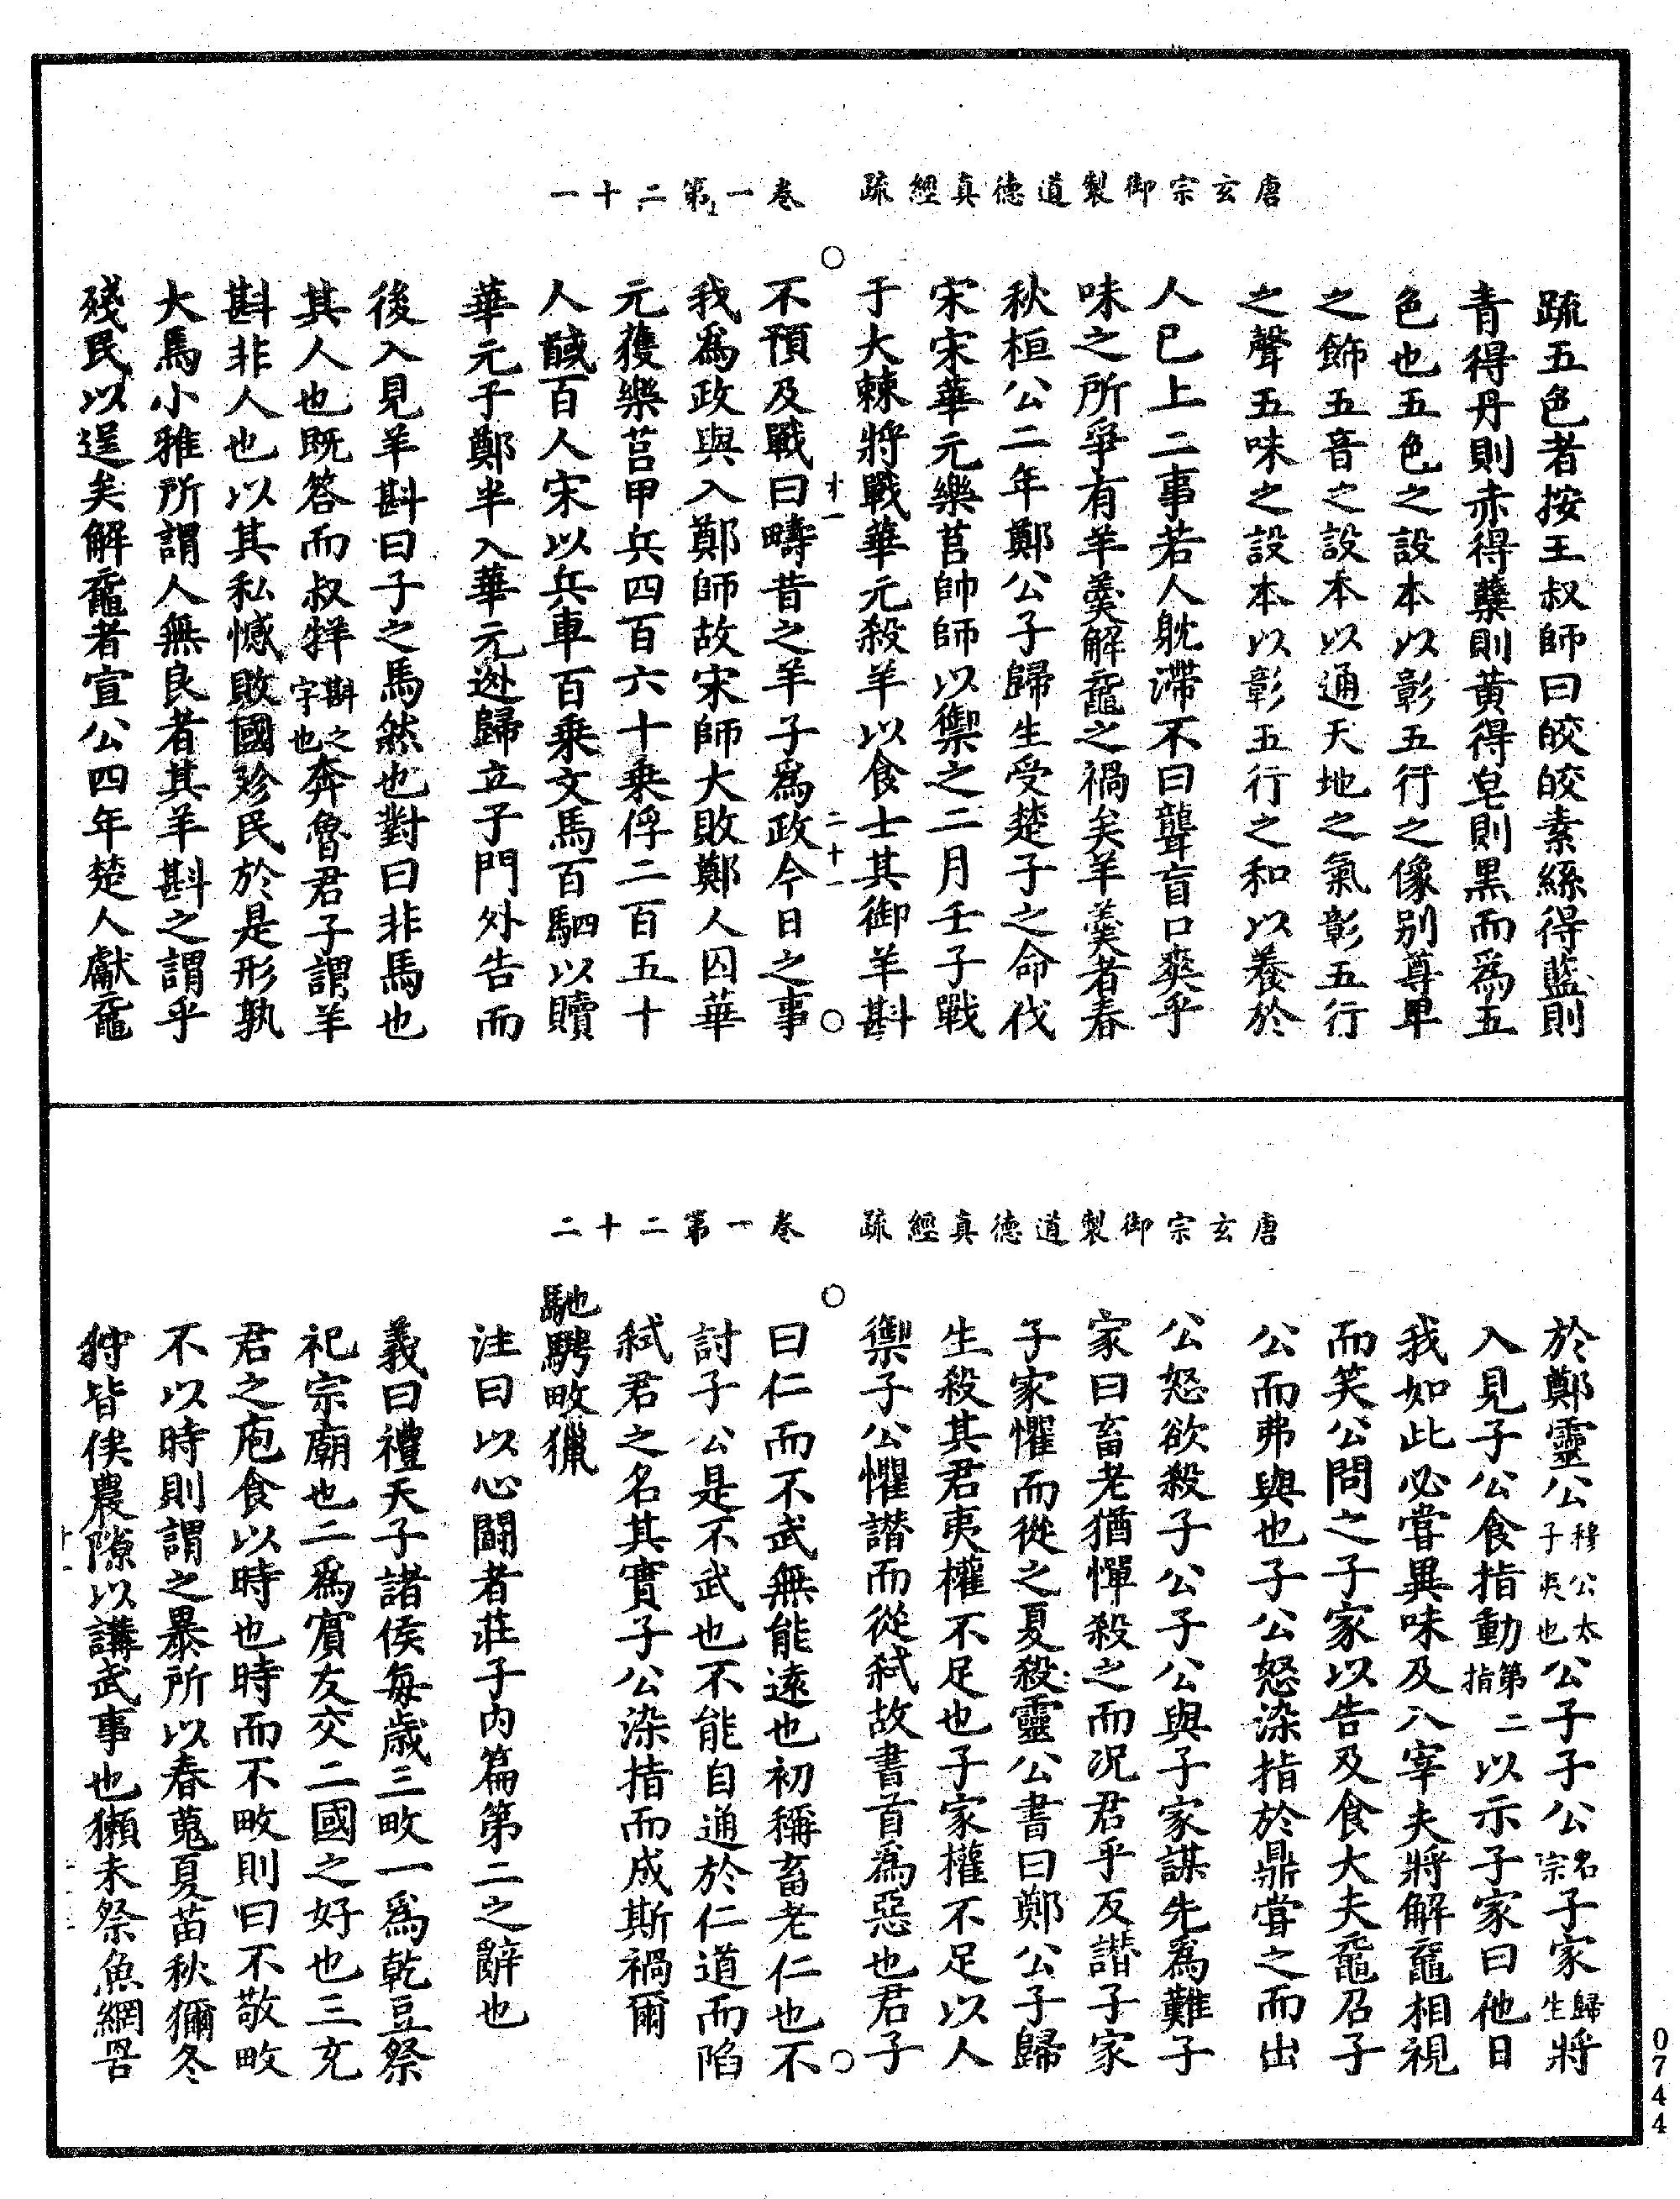 唐玄宗御製道德真經疏　卷一第二十一
疏五色者按王叔師曰皎皎素絲得藍則
青得丹則赤得蘗則黃得皂則黑而為五
色也五色之設本以彰五行之像別尊卑
之飾五音之設本以通天地之氣彰五行
之聲五味之設本以彰五行之和以養於
人已上二事若人躭滯不曰聾盲口爽乎
味之所爭有羊羹解黿之禍矣羊羹者春
秋桓公二年鄭公子歸生受楚子之命伐
宋宋華元樂莒帥師以禦之二月壬子戰
于大棘將戰華元殺羊以食士其御羊斟
十一　二十一
不預及戰曰疇昔之羊子為政今日之事
我為政與入鄭師故宋師大敗鄭人囚華
元獲樂莒甲兵四百六十乘俘二百五十
人馘百人宋以兵車百乘文馬百駟以贖
華元子鄭半入華元逃歸立子門外告而
後入見羊斟曰子之馬然也對曰非馬也
其人也既答而叔牂斟之字也奔魯君子謂羊
斟非人也以其私憾敗國殄民於是形孰
大焉小雅所謂人無良者其羊斟之謂乎
殘民以逞矣解黿者宣公四年楚人獻黿
唐玄宗御製道德真經疏　卷一第二十二
於鄭靈公穆公太子夷也公子子公名宗子家歸生將
入見子公食指動第二指以示子家曰他日
我如此必嘗異味及入宰夫將解黿相視
而笑公問之子家以告及食大夫黿召子
公而弗與也子公怒染指於鼎嘗之而出
公怒欲殺子公子公與子家謀先為難子
家曰畜老猶憚殺之而況君乎反譖子家
子家懼而從之夏殺靈公書曰鄭公子歸
生殺其君夷權不足也子家權不足以人
禦子公懼譖而從弒故書首為惡也君子
曰仁而不武無能遠也初稱畜老仁也不
討子公是不武也不能自通於仁道而陷
弒君之名其實子公染指而成斯禍爾
馳騁畋獵
注曰以心鬪者莊子內篇第二之辭也
義曰禮天子諸侯每歲三畋一為乾豆祭
祀宗廟也二為賓友交二國之好也三充
君之庖食以時也時而不畋則曰不敬畋
不以時則謂之暴所以春蒐夏苗秋獮冬
狩皆俟農隙以講武事也獺未祭魚網罟
十一
0744